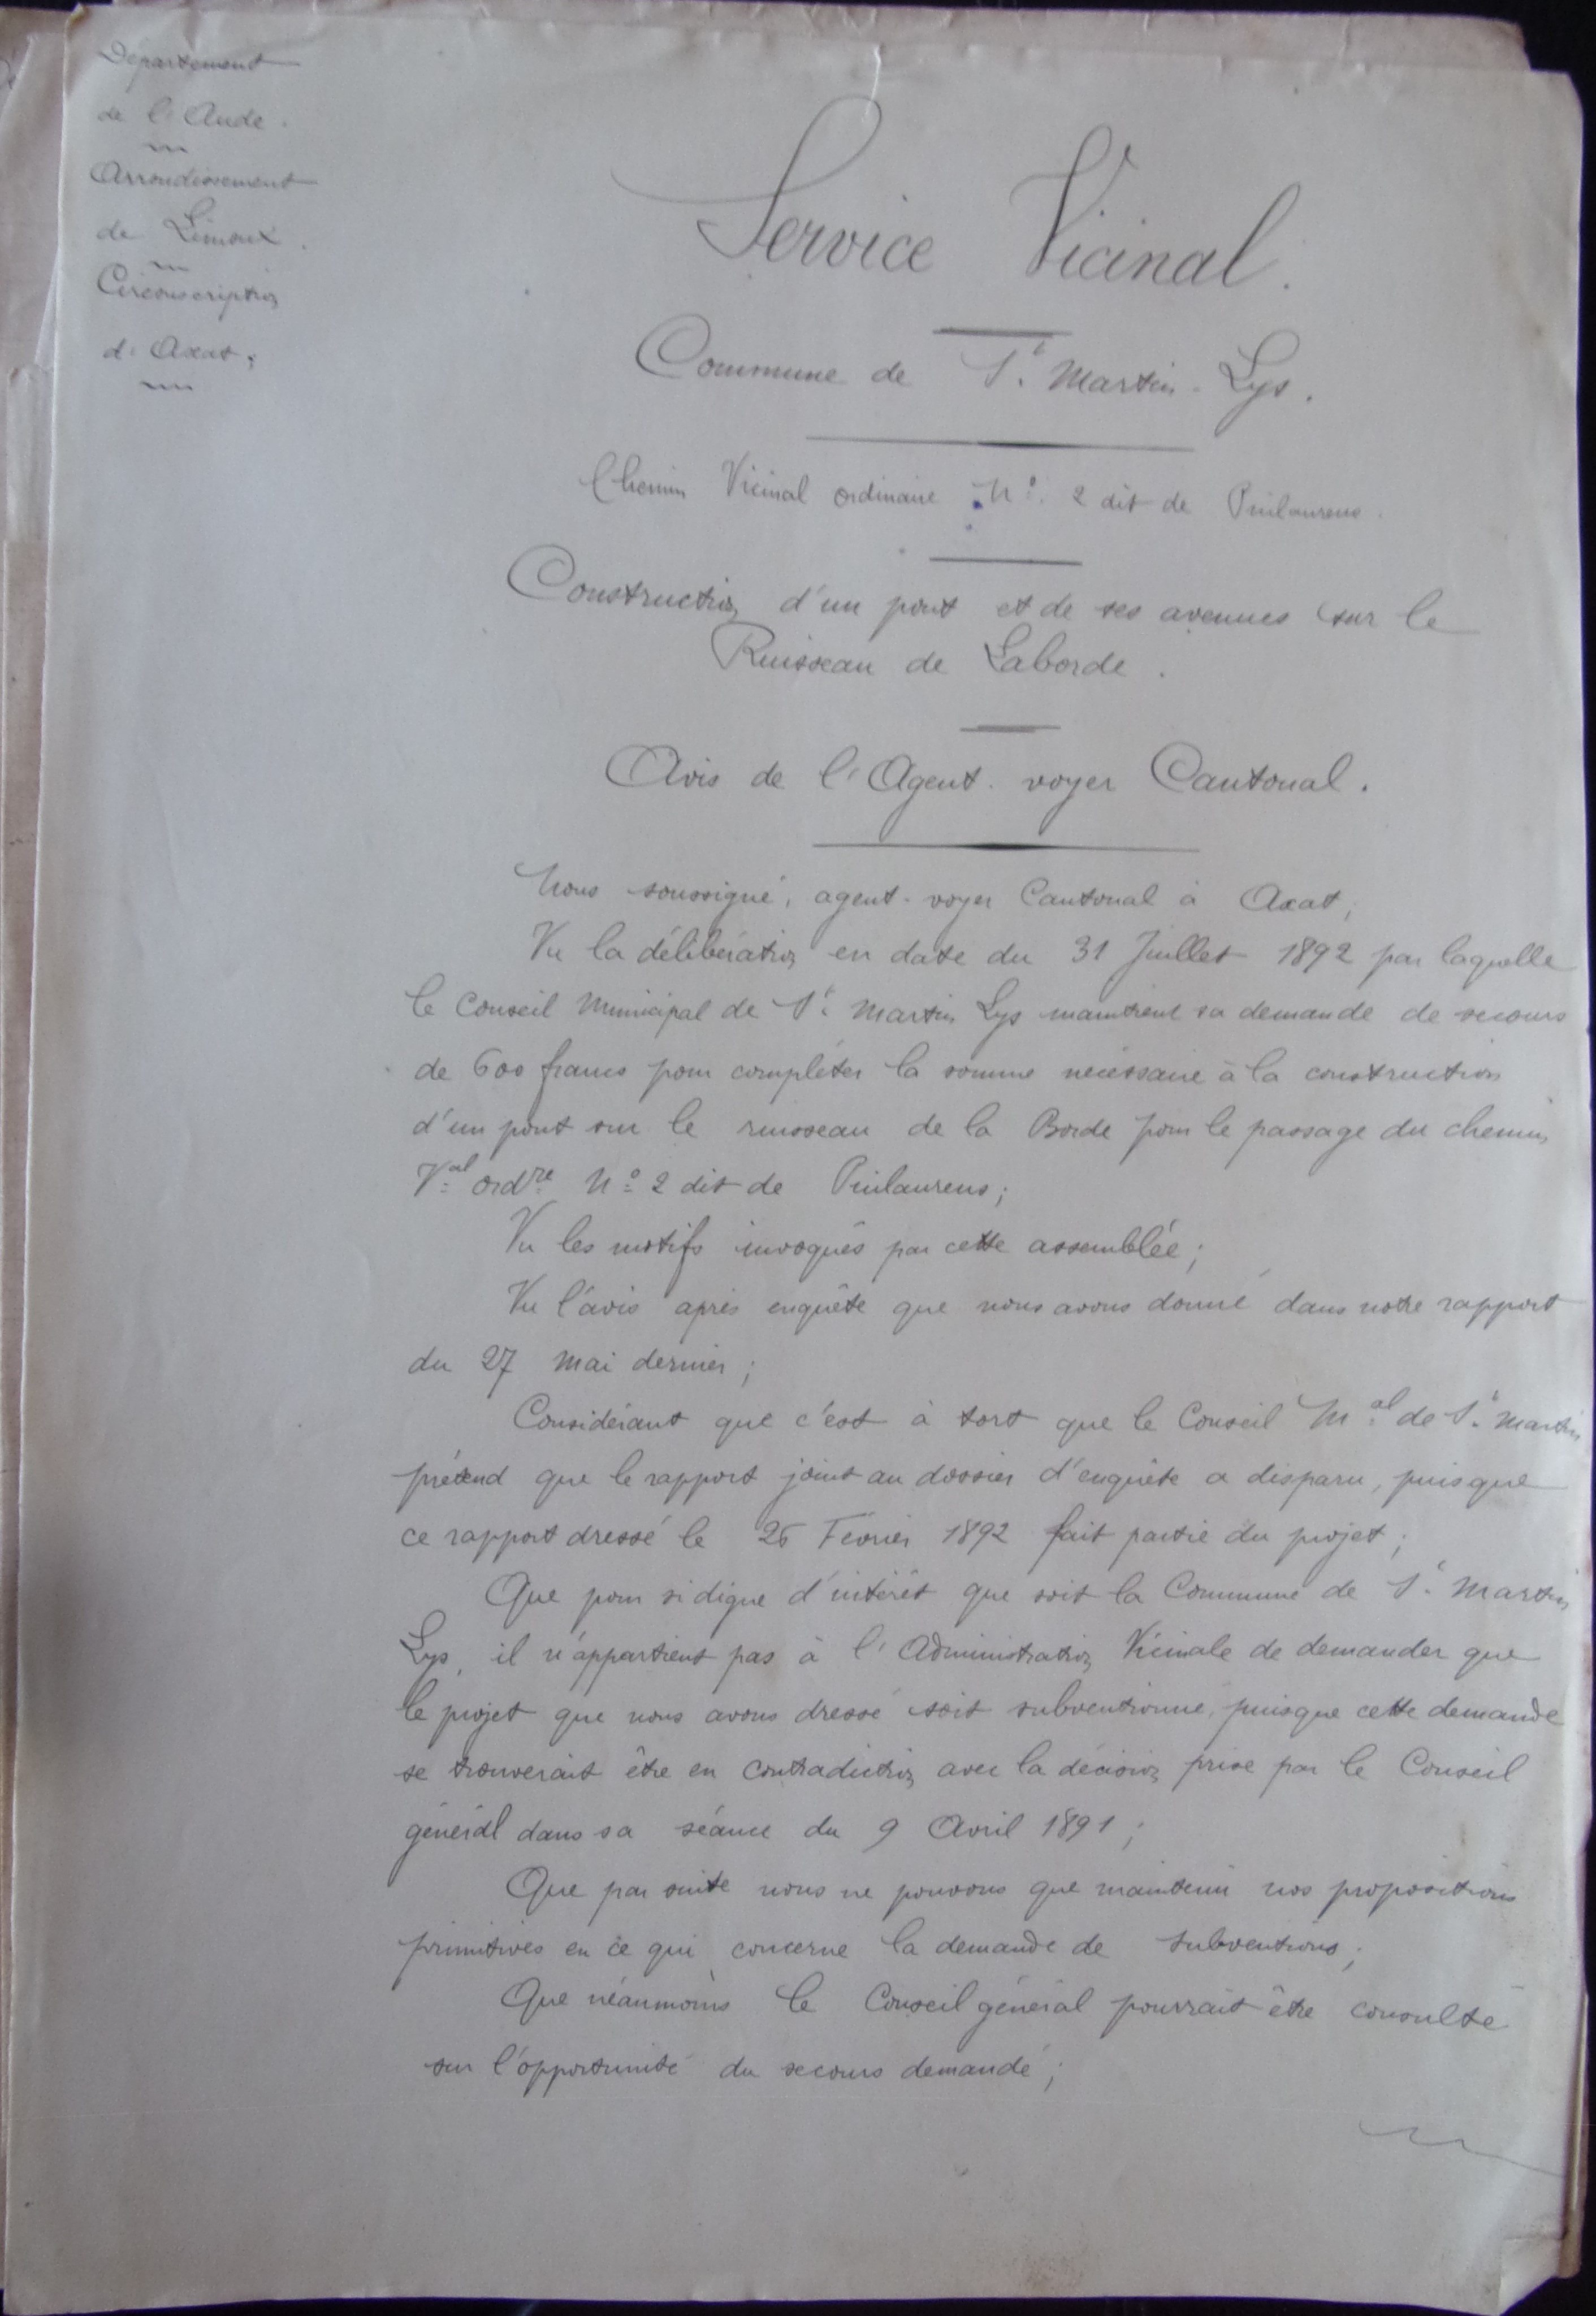 Département
de l'Aude.
Arrondissement
de Limoux.
Circonscription
d'Axat.
Service Vicinal.
Commune de St. Martin-Lys.
Chemin Vicinal ordinaire N° 2 dit de Puilaurens.
Construction d'un pont et de ses avenues sur le
Ruisseau de Laborde.
Avis de l'Agent-voyer Cantonal.
Nous soussigné, agent-voyer Cantonal à Axat,
Vu la délibération en date du 31 Juillet 1892 par laquelle
le Conseil Municipal de St. Martin Lys maintient sa demande de secours
de 600 francs pour compléter la somme nécessaire à la construction
d'un pont sur le ruisseau de la Borde pour le passage du chemin
Val ordre N° 2 dit de Puilaurens;
Vu les motifs invoqués par cette assemblée;
Vu l'avis après enquête que nous avons donné dans notre rapport
du 27 Mai dernier;
Considérant que c'est à tort que le Conseil Mal de St. Martin
prétend que le rapport joint au dossier d'enquête a disparu, puisque
ce rapport dressé le Février 1892 fait partie du projet;
Que pour si digne d'intérêt que soit la Commune de St. Martin
Lys, il n'appartient pas à l'Administration Vicinale de demander que
le projet que nous avons dressé soit subventionné, puisque cette demande
se trouverait être en contradiction avec la décision prise par le Conseil
général dans sa séance du 9 Avril 1891;
Que par suite nous ne pouvons que maintenir nos propositions
primitives en ce qui concerne la demande de subventions;
Que néanmoins le Conseil général pourrait être consulté
sur l'opportunité du secours demandé;